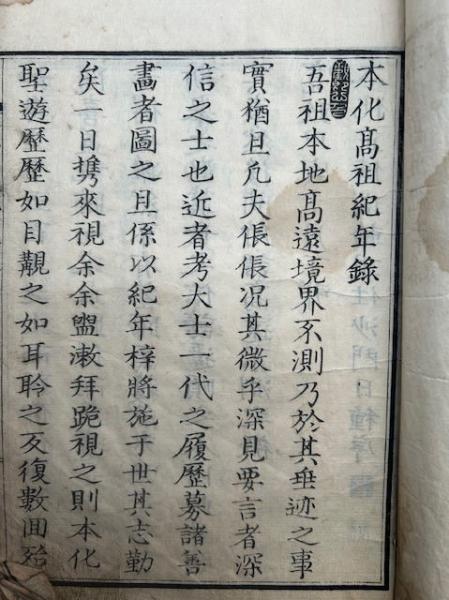 本化髙祖紀年錄
吾祖本地髙遠境界不測乃於其垂迹之事
實猶且凢夫倀倀况其微乎深見要言者深
信之士也近者考大士一代之履歷募諸善
畵者圖之且係以紀年梓將施于世其志勤
矣一日携來視余余盥漱拜跪視之則本化
聖遊歷歷如目覩之如耳聆之反復數囬殆